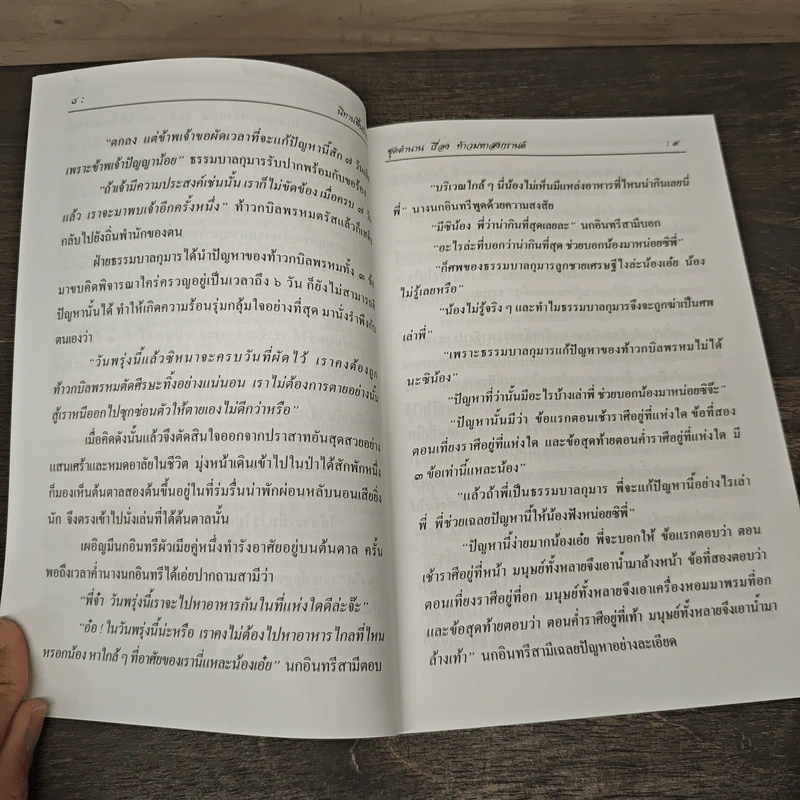 ๘ :
นิทานพื้นบ้าน
"ตกลง แต่ข้าพเจ้าขอผัดเวลาที่จะแก้ปัญหานี้สัก ๗ วัน
เพราะข้าพเจ้าปัญญาน้อย" ธรรมบาลกุมารรับปากพร้อมกับขอร้อง
"ถ้าเจ้ามีความประสงค์เช่นนั้น เราก็ไม่ขัดข้อง เมื่อครบ ๗ วัน
แล้ว เราจะมาพบเจ้าอีกครั้งหนึ่ง" ท้าวกบิลพรหมตรัสแล้วก็เสด็จ
กลับไปยังถิ่นพำนักของตน
ฝ่ายธรรมบาลกุมารได้นำปัญหาของท้าวกบิลพรหมทั้ง ๓ ข้อ
มาขบคิดพิจารณาใคร่ครวญอยู่เป็นเวลาถึง ๖ วัน ก็ยังไม่สามารถ
ปัญหานั้นได้ ทำให้เกิดความร้อนรุ่มกลุ้มใจอย่างที่สุด มานั่งรำพึงกับ
ตนเองว่า
"วันพรุ่งนี้แล้วซิหนาจะครบวันที่ผัดไว้ เราคงต้องถูก
ท้าวกบิลพรหมตัดศีรษะทิ้งอย่างแน่นอน เราไม่ต้องการตายอย่างนั้น
สู้เราหนีออกไปซุกซ่อนตัวให้ตายเองไม่ดีกว่าหรือ"
เมื่อคิดดังนั้นแล้วจึงตัดสินใจออกจากปราสาทอันสุดสวยอย่าง
แสนเศร้าและหมดอาลัยในชีวิต มุ่งหน้าเดินเข้าไปในป่าได้สักพักหนึ่ง
ก็มองเห็นต้นตาลสองต้นขึ้นอยู่ในที่ร่มรื่นน่าพักผ่อนหลับนอนเสียยิ่ง
นัก จึงตรงเข้าไปนั่งเล่นที่ใต้ต้นตาลนั้น
เผอิญมีนกอินทรีผัวเมียคู่หนึ่งทำรังอาศัยอยู่บนต้นตาล ครั้น
พอถึงเวลาค่ำนางนกอินทรีได้เอ่ยปากถามสามีว่า
"พี่จ๋า วันพรุ่งนี้เราจะไปหาอาหารกันในที่แห่งใดดีล่ะจ๊ะ"
"อ๋อ ! ในวันพรุ่งนี้น่ะหรือ เราคงไม่ต้องไปหาอาหารไกลที่ไหน
หรอกน้อง หาใกล้ ๆ ที่อาศัยของเรานี่แหละน้องเอ๋ย" นกอินทรีสามีตอบ
ชุดตำนาน เรื่อง ท้าวมหาสงกรานต์
: ๙
"บริเวณใกล้ ๆ นี่น้องไม่เห็นมีแหล่งอาหารที่ไหนน่ากินเลยนี่
พี่" นางนกอินทรีพูดด้วยความสงสัย
"มีซิน้อง พี่ว่าน่ากินที่สุดเลยละ" นกอินทรีสามีบอก
"อะไรล่ะที่บอกว่าน่ากินที่สุด ช่วยบอกน้องมาหน่อยซิพี่"
"ก็ศพของธรรมบาลกุมารลูกชายเศรษฐีไงล่ะน้องเอ๋ย น้อง
ไม่รู้เลยหรือ"
"น้องไม่รู้จริง ๆ และทำไมธรรมบาลกุมารจึงจะถูกฆ่าเป็นศพ
เล่าพี่"
"เพราะธรรมบาลกุมารแก้ปัญหาของท้าวกบิลพรหมไม่ได้
นะซิน้อง"
"ปัญหาที่ว่านั้นมีอะไรบ้างเล่าพี่ ช่วยบอกน้องมาหน่อยซิจ๊ะ"
"ปัญหานั้นมีว่า ข้อแรกตอนเช้าราศีอยู่ที่แห่งใด ข้อที่สอง
ตอนเที่ยงราศีอยู่ที่แห่งใด และข้อสุดท้ายตอนค่ำราศีอยู่ที่แห่งใด มี
๓ ข้อเท่านี้แหละน้อง"
"แล้วถ้าพี่เป็นธรรมบาลกุมาร พี่จะแก้ปัญหานี้อย่างไรเล่า
พี่ พี่ช่วยเฉลยปัญหานี้ให้น้องฟังหน่อยซิพี่"
"ปัญหานี้ง่ายมากน้องเอ๋ย พี่จะบอกให้ ข้อแรกตอบว่า ตอน
เช้าราศีอยู่ที่หน้า มนุษย์ทั้งหลายจึงเอาน้ำมาล้างหน้า ข้อที่สองตอบว่า
ตอนเที่ยงราศีอยู่ที่อก มนุษย์ทั้งหลายจึงเอาเครื่องหอมมาพรมที่อก
และข้อสุดท้ายตอบว่า ตอนค่ำราศีอยู่ที่เท้า มนุษย์ทั้งหลายจึงเอาน้ำมา
ล้างเท้า" นกอินทรีสามีเฉลยปัญหาอย่างละเอียด